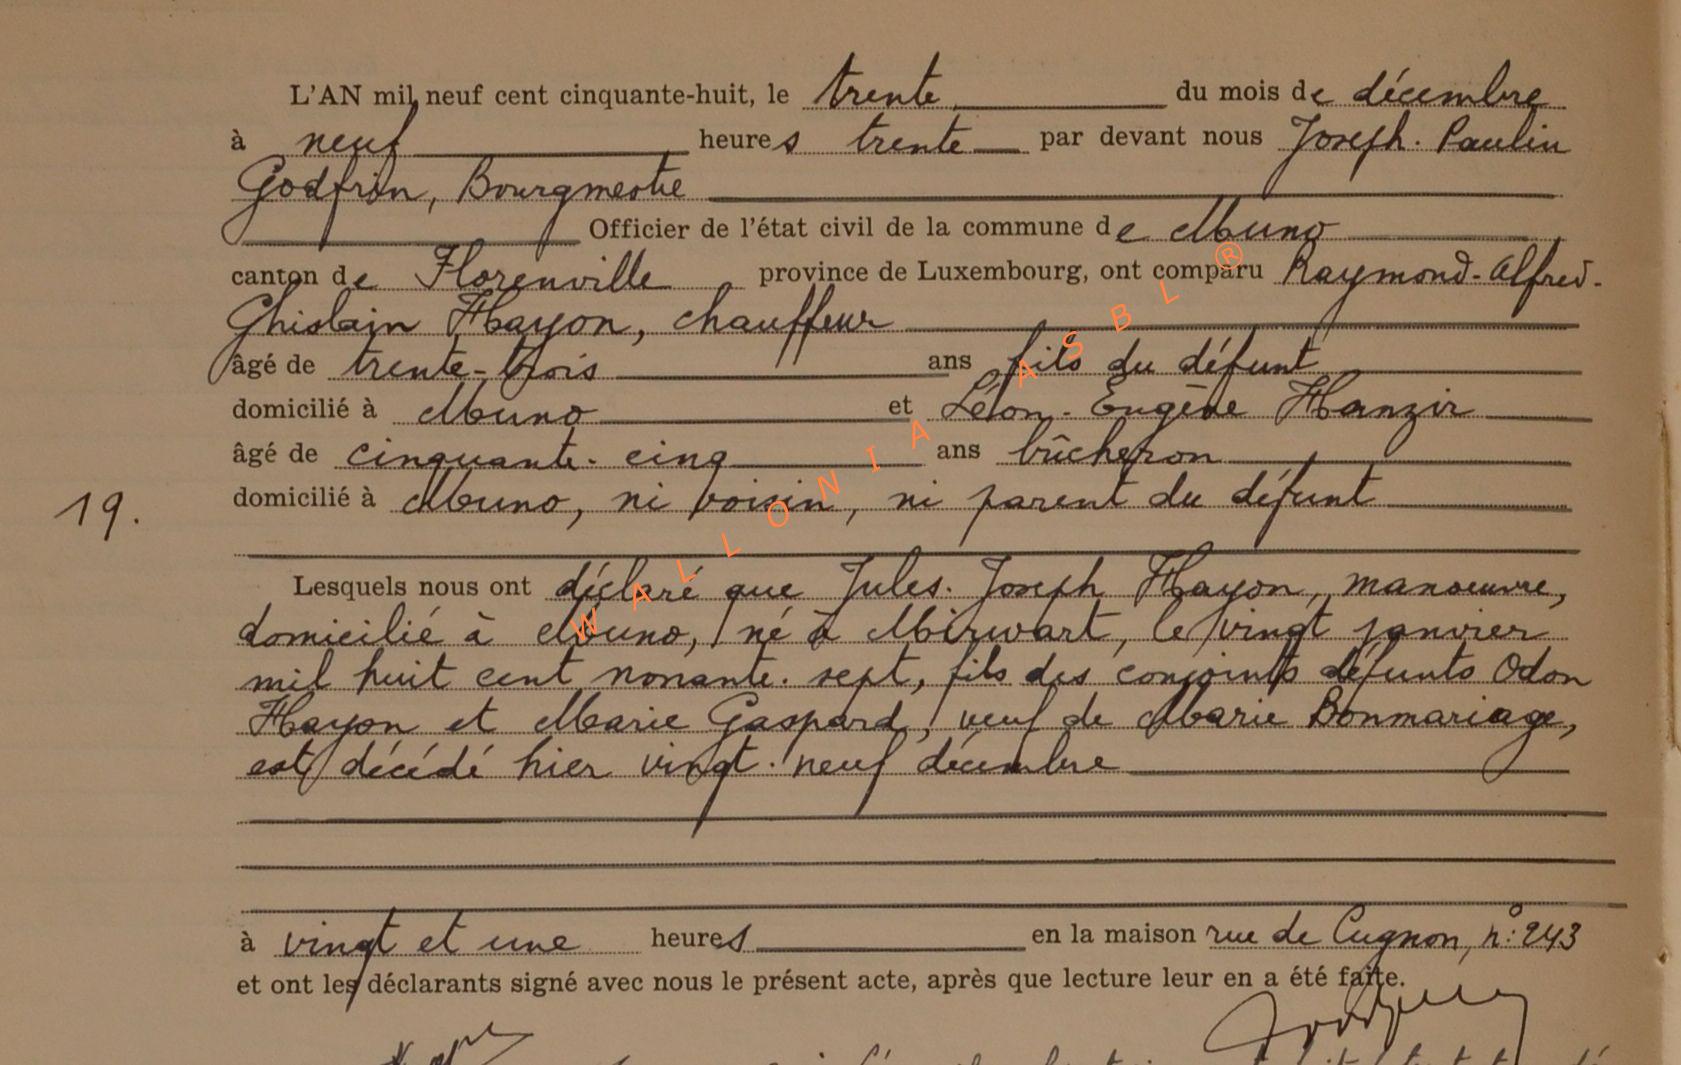 L'AN mil neuf cent cinquante-huit, le trente du mois de décembre
à neuf heures trente par devant nous Joseph-Paulin
Godfrin, Bourgmestre
Officier de l'état civil de la commune de Muno
canton de Florenville province de Luxembourg, ont comparu Raymond-Alfred-
Ghislain Hayon, chauffeur
âgé de trente-trois ans fils du défunt
domicilié à Muno et Léon-Eugène Hanzir
âgé de cinquante-cinq ans bûcheron
19. domicilié à Muno, ni voisin, ni parent du défunt
Lesquels nous ont déclaré que Jules-Joseph Hayon, manoeuvre,
domicilié à Muno, né à Mirwart, le vingt janvier
mil huit cent nonante-sept, fils des conjoints défunts Odon
Hayon et Marie Gaspard, veuf de Marie Bonmariage,
est décédé hier vingt-neuf décembre
à vingt et une heures en la maison rue de Cugnon, n° 243
et ont les déclarants signé avec nous le présent acte, après que lecture leur en a été faite.
WALLONIA ASBL ®